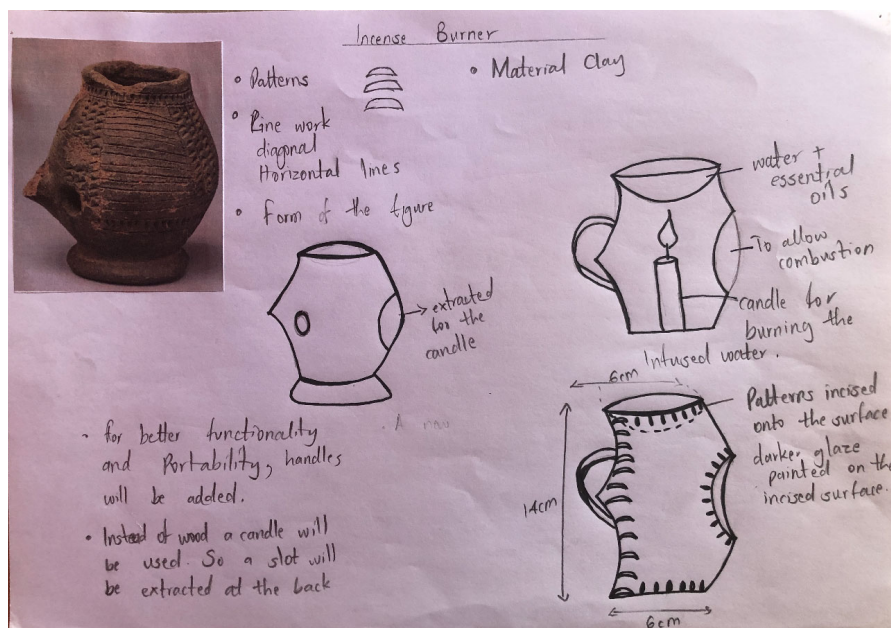 Incense Burner
• Patterns
• Line work
diagonal
Horizontal lines
• Form of the figure
• Material Clay
extracted
for the
candle
water +
essential
oils
To allow
combustion
candle for
burning the
Infused water.
- for better functionality
and Portability, handles
will be added.
• Instead of wood a candle will
be used. So a slot will
be extracted at the back
6cm
14cm
6cm
Patterns incised
onto the surface
darker glaze
painted on the
incised surface.